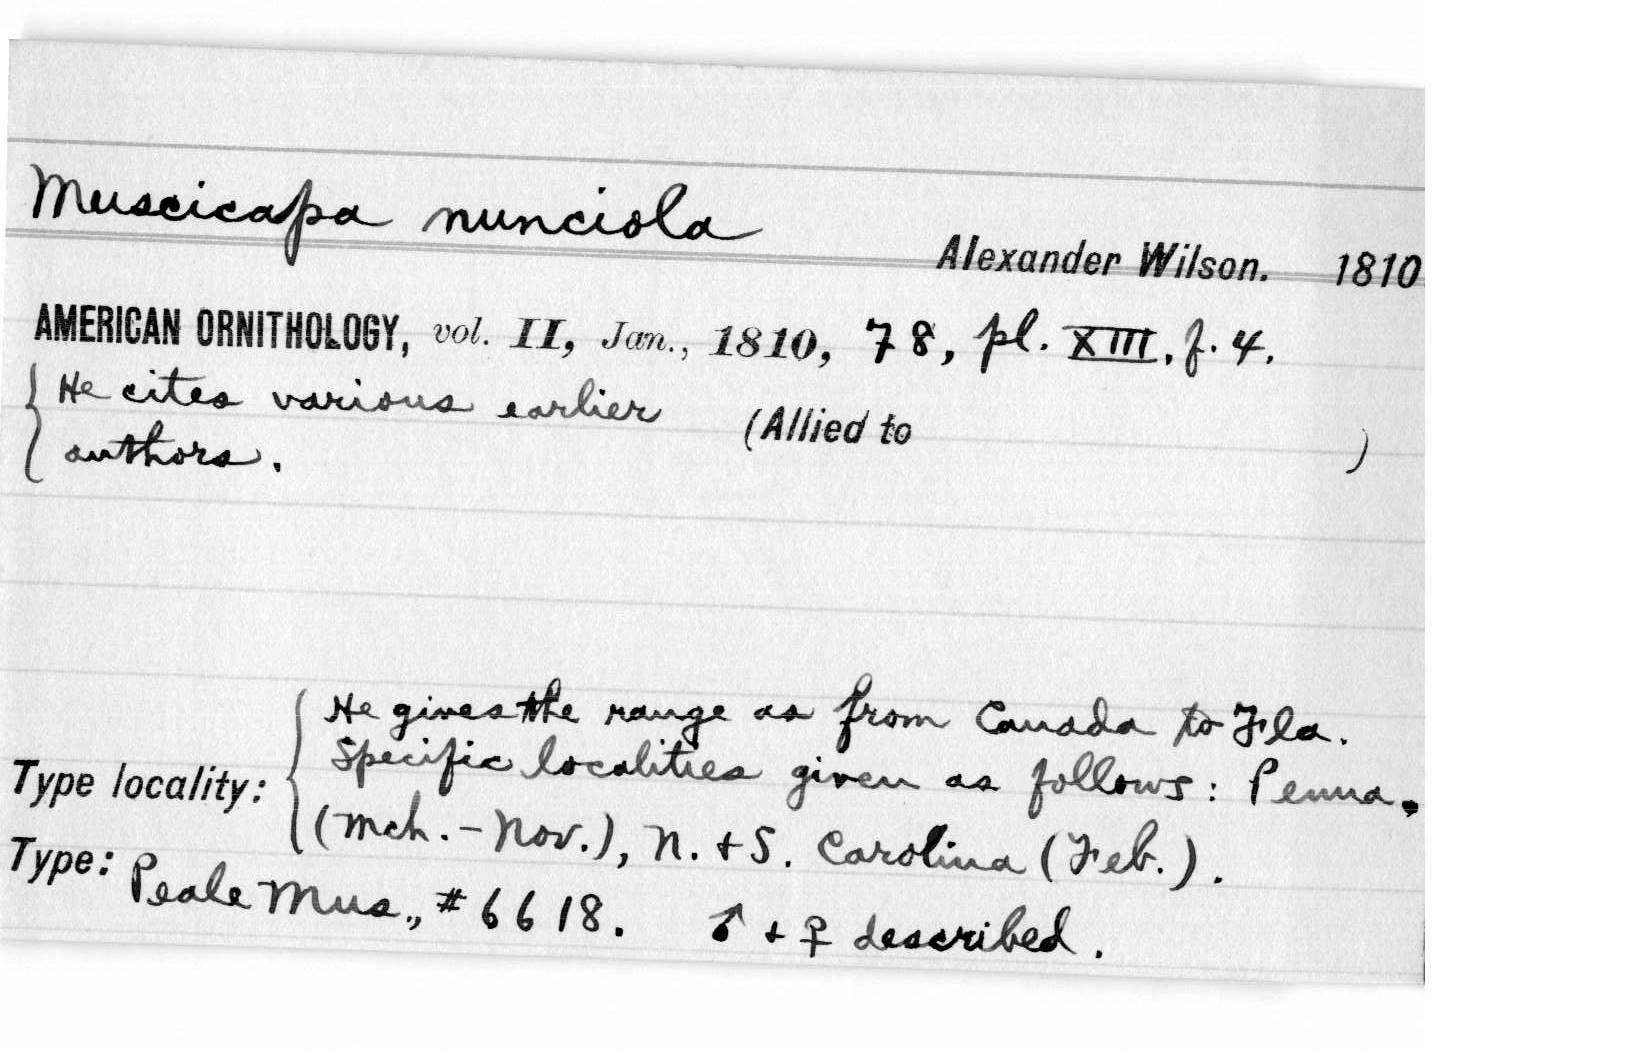 Muscicapa nunciola
Alexander Wilson. 1810
AMERICAN ORNITHOLOGY, vol. II, Jan., 1810, 78, pl. XIII, f. 4.
{ He cites various earlier
authors.
(Allied to )
{ He gives the range as from Canada to Fla.
Specific localities given as follows: Penna.
Type locality:
(Mch. - Nov.), N. + S. Carolina (Feb.).
Type: Peale Mus., # 6618. ♂ + ♀ described.